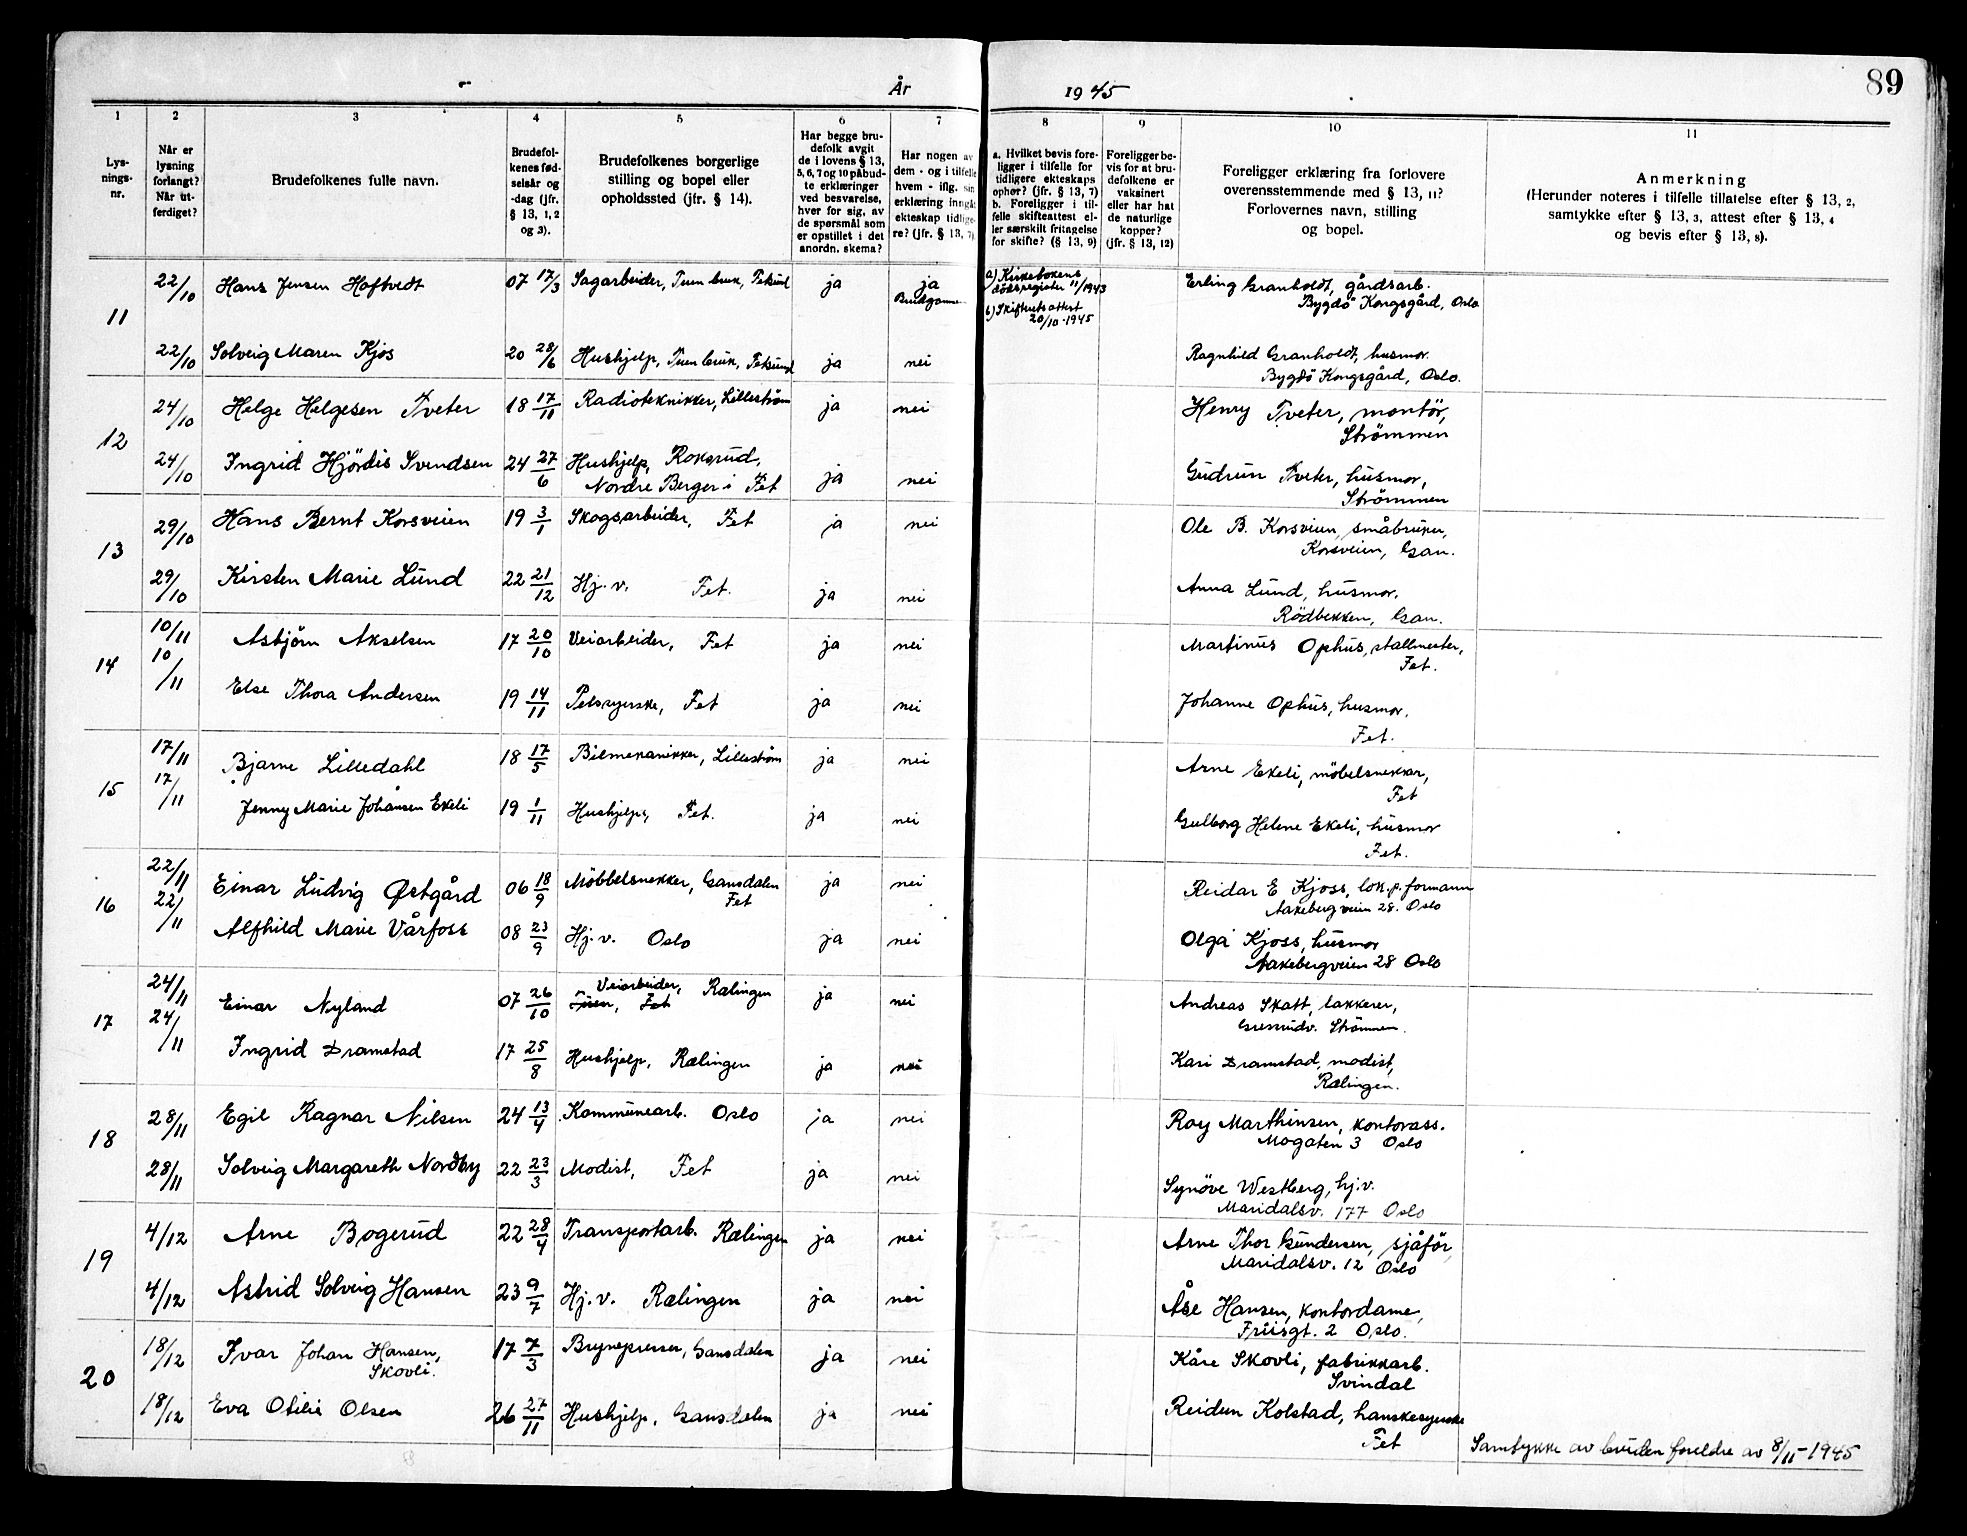 89
År 1945
1 2 3 4 5 6 7 8 9 10 11
Lys-
nings-
nr.
Når er
lysning
forlangt?
Når ut-
ferdiget?
Brudefolkenes fulle navn.
Brudefol-
kenes fød-
selsår og
-dag (jfr.
§ 13, 1, 2
og 3).
Brudefolkenes borgerlige
stilling og bopel eller
opholdssted (jfr. § 14).
Har begge bru-
defolk avgit
de i lovens § 13,
5, 6, 7 og 10 påbud-
te erklæringer
ved besvarelse,
hver for sig, av
de spørsmål som
er opstillet i det
anordn. skema?
Har nogen av
dem - og i tilfelle
hvem - iflg. sin
erklæring inngå
ekteskap tidlige-
re? (jfr. § 13, 7)
a. Hvilket bevis fore-
ligger i tilfelle for
tidligere ekteskaps
ophør? (jfr. § 13, 7)
b. Foreligger i til-
felle skifteattest el-
ler særskilt fritagelse
for skifte? (§ 13, 9)
Foreligger be-
vis for at bru-
defolkene er
vaksinert
eller har hat
de naturlige
kopper?
(jfr. § 13, 12)
Foreligger erklæring fra forlovere
overensstemmende med § 13, 11?
Forlovernes navn, stilling
og bopel.
Anmerkning
(Herunder noteres i tilfelle tillatelse efter § 13, 2,
samtykke efter § 13, 3, attest efter § 13, 4
og bevis efter § 13, 8).
11
22/10 Hans Jensen Haftvedt 07 17/3 Sagarbeider, Tuen bruk, Fetsund ja ja
Brudgommen
a) Kirkebokens
dødsregister 11/1943
b) Skifterets attest
20/10-1945
Erling Granholdt, gårdsarb.
Bygdö Kongsgård, Oslo
22/10 Solveig Maren Kjos 20 28/6 Hushjelp, Tuen bruk, Fetsund ja nei
Ragnhild Granholdt, husmor.
Bygdö Kongsgård, Oslo.
12
24/10 Helge Helgesen Tveter 18 17/11 Radioteknikker, Lilleström ja nei
Henry Tveter, montör,
Strömmen
24/10 Ingrid Hjördis Svendsen 24 27/6 Hushjelp, Roksrud,
Nordre Berger i Fet ja nei
Gudrun Tveter, husmor,
Strömmen
13
29/10 Hans Bernt Korsveien 19 3/1 Skogsarbeider, Fet ja nei
Ole B. Korsveien, småbruker,
Korsveien, Gan.
29/10 Kirsten Marie Lund 22 21/12 Hj.v. Fet. ja nei
Anna Lund, husmor.
Rödbekken, Gan.
14
10/11 Asbjörn Akselsen 17 20/10 Veiarbeider, Fet ja nei
Martinus Ophus, stallmester,
Fet.
10/11 Else Thora Andersen 19 14/11 Pelssyerske, Fet ja nei
Johanne Ophus, husmor.
Fet.
15
17/11 Bjarne Lilledahl 18 17/5 Bilmekanikker, Lilleström ja nei
Arne Ekeli, möbelsnekker,
Fet
17/11 Jenny Marie Johansen Ekeli 19 1/11 Hushjelp, Fet. ja nei
Gulborg Helene Ekeli, husmor
Fet.
16
22/11 Einar Ludvig Østgård 06 18/9 Möbbelsnekker, Gansdalen
Fet ja nei
Reidar E Kjoss, lok.p. formann
Aakebergveien 28. Oslo
22/11 Alfhild Marie Vårfoss 08 23/9 Hj.v. Oslo ja nei
Olga Kjoss, husmor
Aakebergveien 28 Oslo
17
24/11 Einar Nyland 07 26/10 Veiarbeider, Rælingen
Fet ja nei
Andreas Skatt, lakkerer,
Strömmen.
24/11 Ingrid Dramstad 17 25/8 Hushjelp, Rælingen ja nei
Kari Dramstad, modist,
Rælingen.
18
28/11 Egil Ragnar Nilsen 24 13/4 Kommunearb. Oslo ja nei
Roy Marthinsen, kontorass.
Mogaten 3 Oslo
28/11 Solveig Margareth Nordby 22 23/3 Modist, Fet ja nei
Synöve Westberg, hj.v.
Maridalsv. 177 Oslo
19
4/12 Arne Bogerud 22 28/4 Transportarb. Rælingen ja nei
Arne Thor Gundersen, sjåför,
Maridalsv. 12 Oslo
4/12 Astrid Solveig Hansen 23 9/7 Hj.v. Rælingen ja nei
Åse Hansen, kontordame,
Friisgt. 2 Oslo.
20
18/12 Ivar Johan Hansen,
Skovli. 17 7/3 Brynepresser, Gansdalen ja nei
Kåre Skovli, fabrikkarb.
Svindal
18/12 Eva Otilie Olsen 26 27/11 Hushjelp, Gansdalen ja nei
Reidun Kolstad, hanskesyerske
Fet
Samtykke av bruden foreldre av 8/11-1945